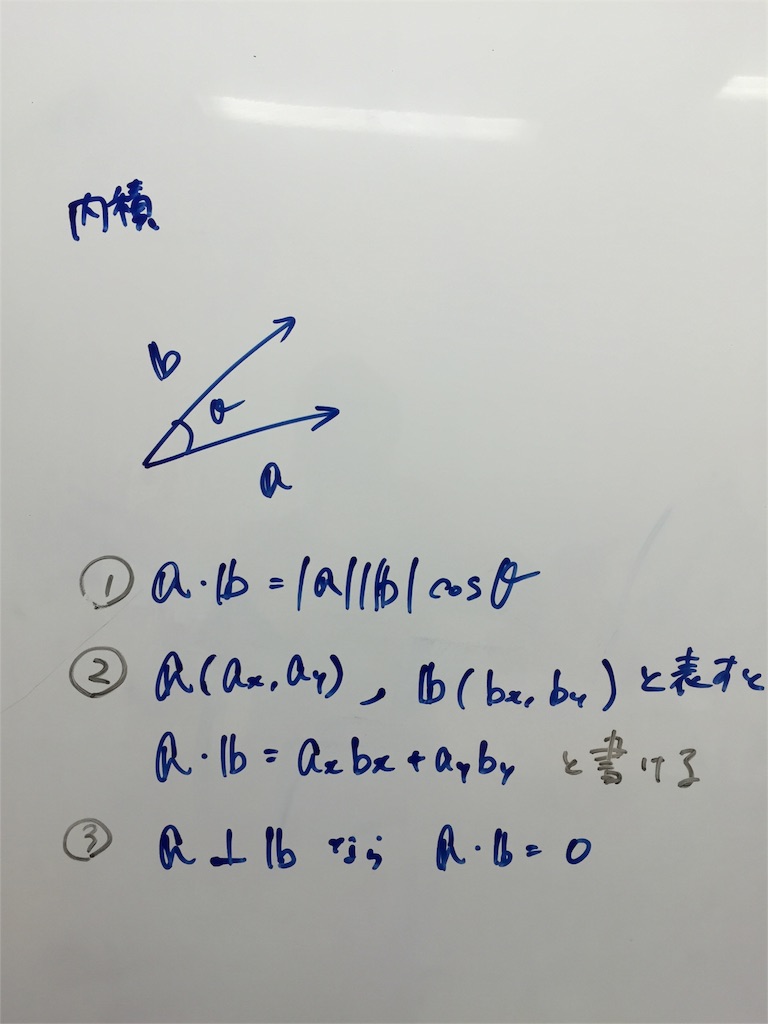 内積
b
θ
a
① a・b = |a||b| cosθ
② a(ax, ay), b(bx, by) と表すと
a・b = axbx + ayby と書ける
③ a⊥b ならば a・b = 0